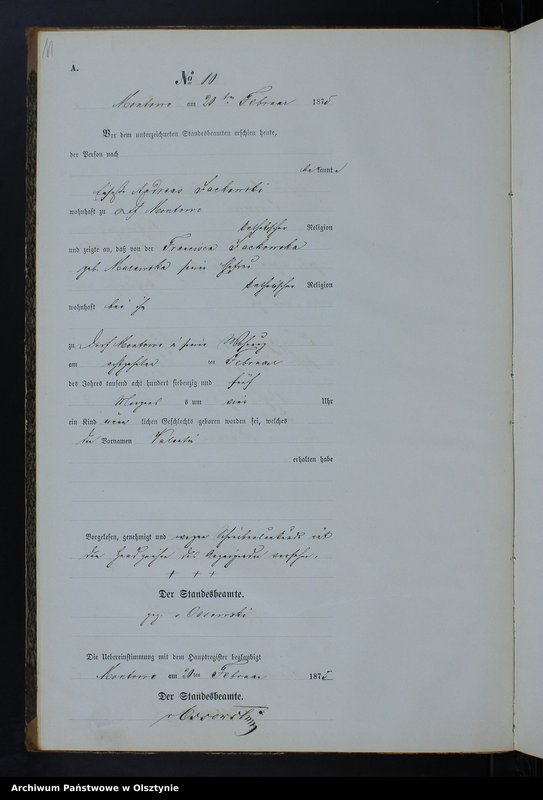 A.
№ 10
Montowo am 20ten Februar 1875
Vor dem unterzeichneten Standesbeamten erschien heute,
der Person nach
bekannte
Andreas Jackowski
wohnhaft zu Montowo
katholischer Religion
und zeigte an, daß von der Francisca Jackowska
geb. seine Ehefrau
katholischer Religion
wohnhaft bei ihm
zu Dorf Montowo in seiner Wohnung
am achtzehnten ten Februar
des Jahres tausend acht hundert siebenzig und fünf
Morgens s um Uhr
ein Kind männlichen Geschlechts geboren worden sei, welches
den Vornamen Valentin
erhalten habe
Vorgelesen, genehmigt und wegen mit
dem Handzeichen des versehen.
+ + +
Der Standesbeamte.
gez. v Ossowski
Die Uebereinstimmung mit dem Hauptregister beglaubigt
Montowo am 20ten Februar 1875
Der Standesbeamte.
v Ossowski
Archiwum Państwowe w Olsztynie